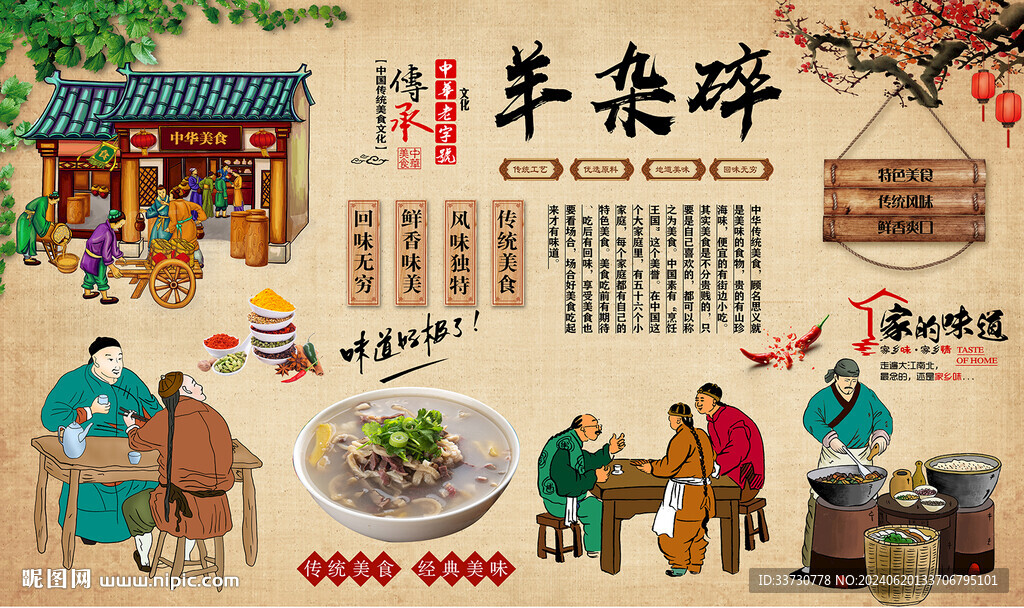 羊杂碎
传统工艺
优选原料
地道美味
回味无穷
中華老字號
文化
傳承
【中国传统美食文化】
中華美食
中华美食
传统美食
风味独特
鲜香味美
回味无穷
中华传统美食，顾名思义就
是美味的食物，贵的有山珍
海味，便宜的有街边小吃。
其实美食是不分贵贱的，只
要是自己喜欢的，都可以称
之为美食。中国素有“烹饪
王国”这个美誉。在中国这
个大家庭里，有五十六个小
家庭，每个家庭都有自己的
特色美食。美食吃前有期待
、吃后有回味，享受美食也
要看场合，场合好美食吃起
来才有味道。
特色美食
传统风味
鲜香爽口
味道好极了！
家的味道
家乡味·家乡情
TASTE
OF HOME
走遍大江南北，
最念的，还是家乡味...
传统美食
经典美味
昵图网 www.nipic.com
ID:33730778 NO:20240620133706795101